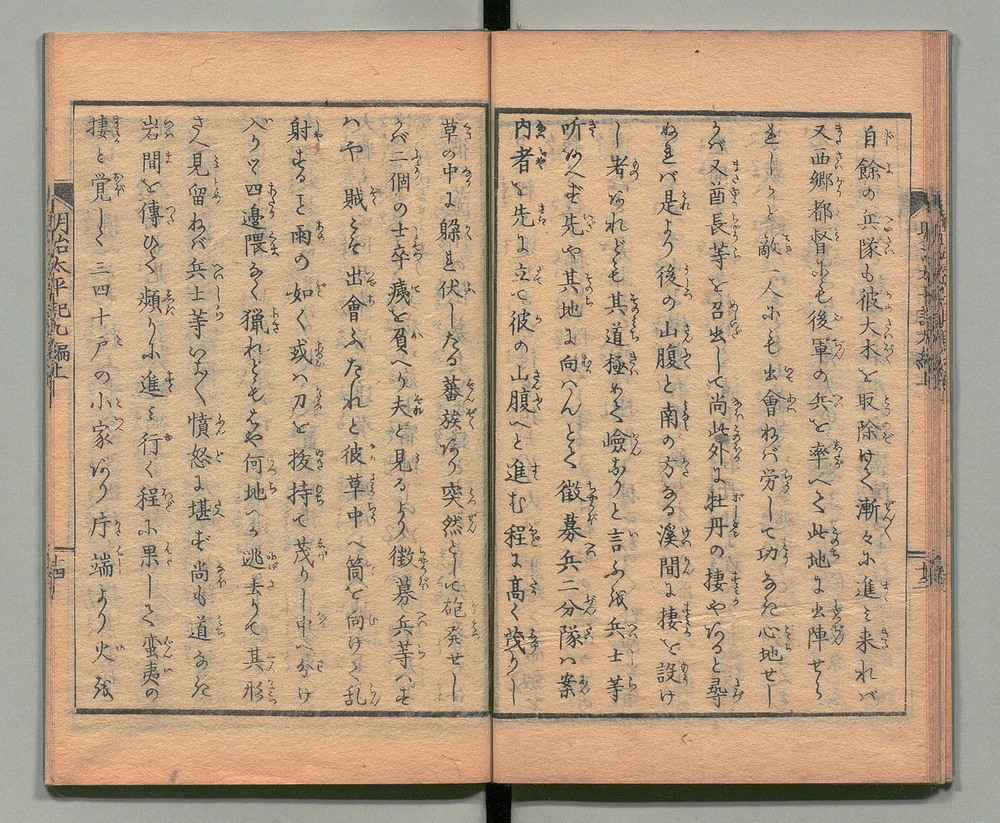 自餘の兵隊も彼大木を取除けて漸々に進み来れバ
又西郷都督にも後軍の兵を率へて此地に出陣せら
れしかど敵一人にも出會ねバ労して功なき心地せし
かバ又酋長等を召出して尚此外に牡丹の棲やあると尋
ぬれバ是より後の山腹と南の方なる溪間に棲を設け
し者あれども其道極めて嶮なりと言ふを兵士等
听あへず先や其地に向ハんとて徴募兵二分隊ハ案
内者を先に立て彼の山腹へと進む程に髙く茂りし
草の中に躲れ伏したる蕃族あり突然として砲発せし
かバ二個の士卒痍を負へり夫と見るより徴募兵等ハす
ハや賊こそ出會ふたれと彼草中へ筒を向けて乱
射すること雨の如く或ハ刀を抜持て茂りし中へ分け
入りつ四邉隈なく猟れどもはや何地へか逃去りて其形
さへ見留ねバ兵士等いたく憤怒に堪ず尚も道なき
岩間を傳ひて頻りに進み行く程に果して蛮夷の
棲と覚しく三四十戸の小家あり庁端より火を
明治太平記九編上
十四